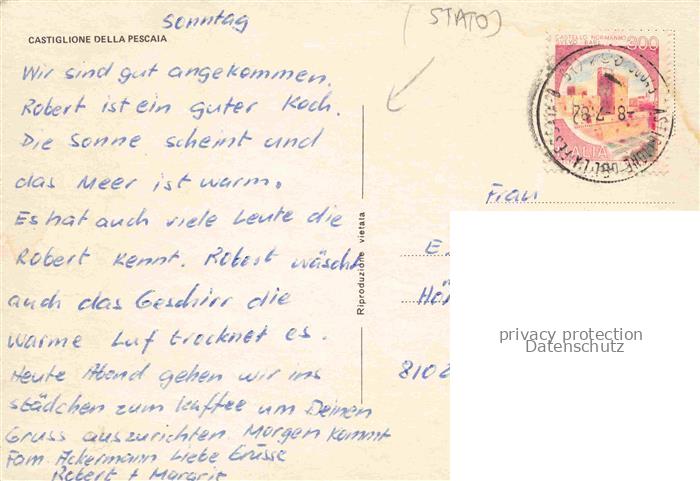 Sonntag
(STATO)
CASTIGLIONE DELLA PESCAIA
CASTELLO NORMANNO
SVEVO BARI
200
-8-7.82
ITALIA
Wir sind gut angekommen.
Robert ist ein guter Koch.
Die Sonne scheint und
das Meer ist warm.
Es hat auch viele Leute die
Robert kennt. Robert wäscht
auch das Geschirr die
warme Luf trocknet es.
Heute Abend gehen wir ins
städchen zum Kaffee um Deinen
Gruss auszurichten Morgen kommt
Fam. Ackermann Liebe Grüsse
Robert +
Riproduzione vietata
Frau
E.
810
privacy protection
Datenschutz